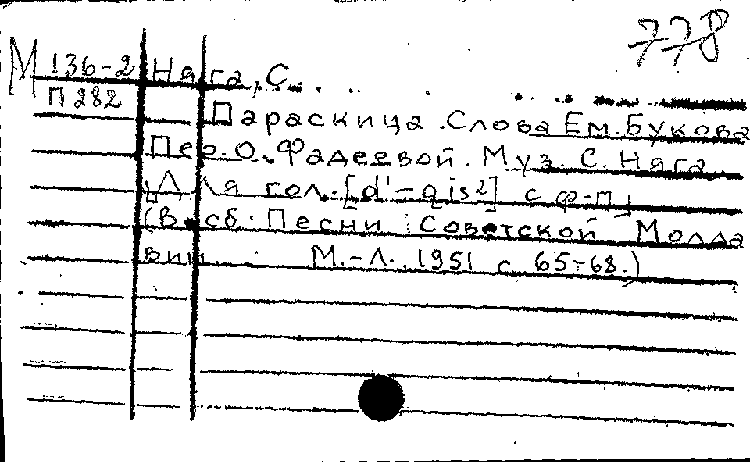 778
М 136-2 Няга, С.
П 282
Параскица. Слова Ем. Букова
Пер. О. Фадеевой. Муз. С. Няга
[Для гол. [d'-gis²] с ф-п]
(В сб. Песни Советской Молда
вии М.-Л. 1951 с. 65-68.)